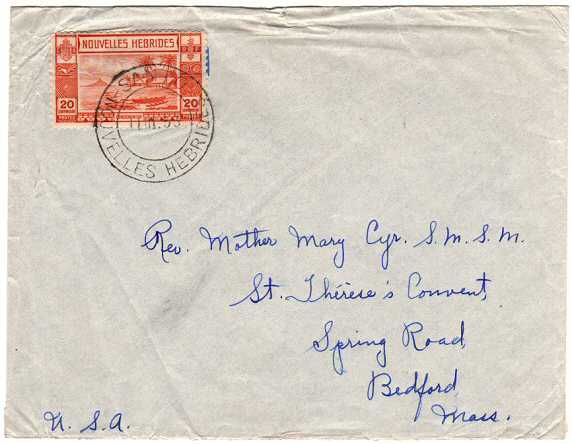 NOUVELLES HEBRIDES
20 20
SAN
NOUVELLES HEBRIDES
Rev. Mother Mary Cyr. S.M.S.M.
St. Thérèse's Convent,
Spring Road,
Bedford,
Mass.
U.S.A.